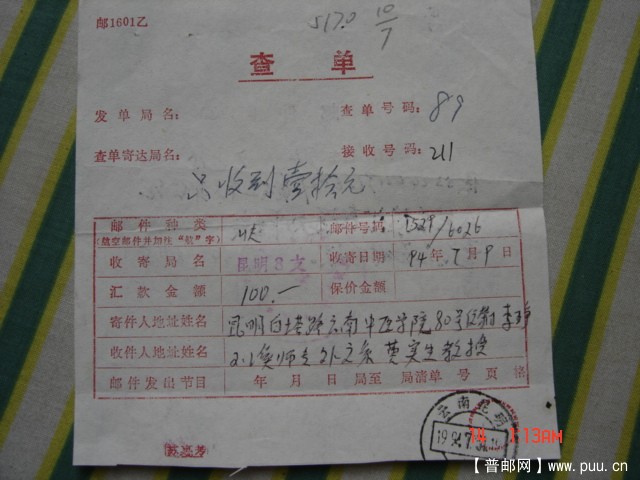 邮1601乙
5170 10/7
查单
发单局名: 查单号码: 89
查单寄达局名: 接收号码: 211
只收到壹拾元
邮件种类 邮件号码
(航空邮件并加注“航”字)
收寄局名 昆明3支 收寄日期 94年7月9日
汇款金额 100.— 保价金额
寄件人地址姓名 昆明白塔路云南中医学院80号信箱 李
收件人地址姓名 师 外文系 黄实生教授
邮件发出节目 年 月 日 局至 局清单 号 页 格
云南昆明
14 1:13AM
【普邮网】www.puu.cn